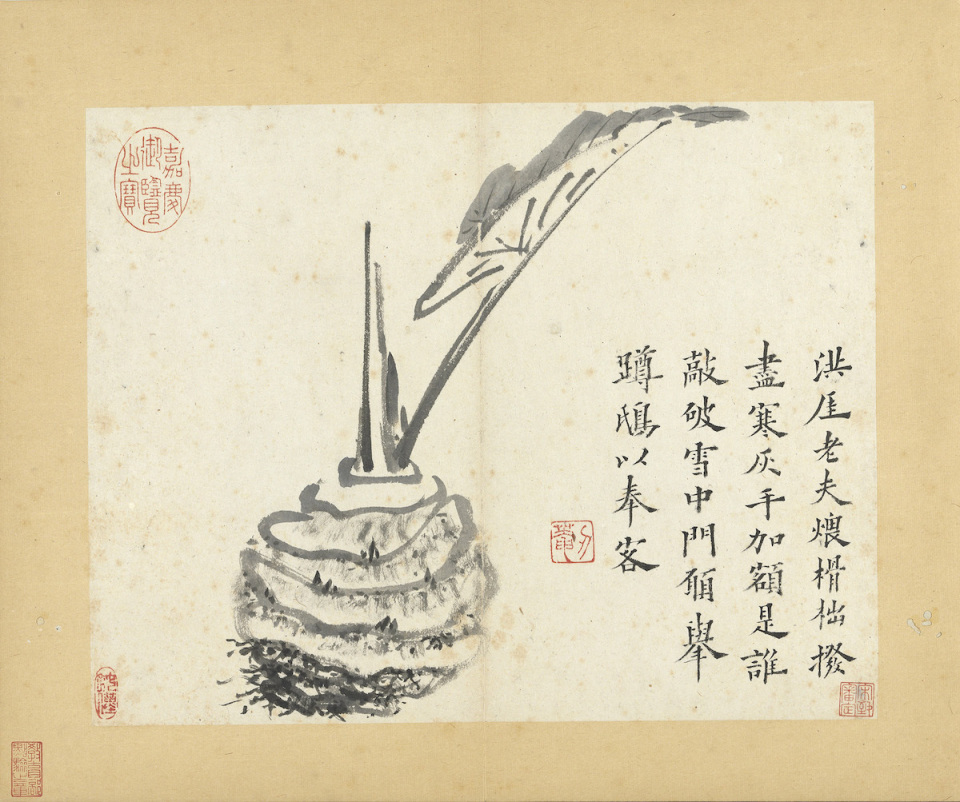 洪厓老夫煨榾柮撥
盡寒灰手加額是誰
敲破雪中門願舉
蹲鴟以奉客
刃菴
嘉慶
御覽
之寶